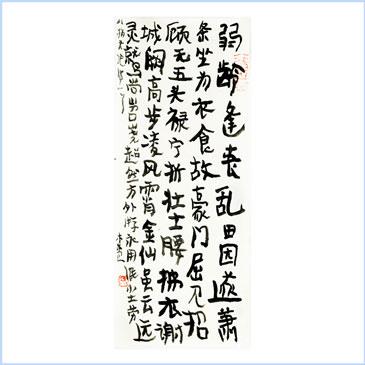 弱龄逢丧乱田园遂萧
条坐为衣食故豪门屈见招
顾无五头禄宁折壮士腰拂衣谢
城阙高步凌风霄金仙虽云远
灵鹫尚岧峣超然方外游永用